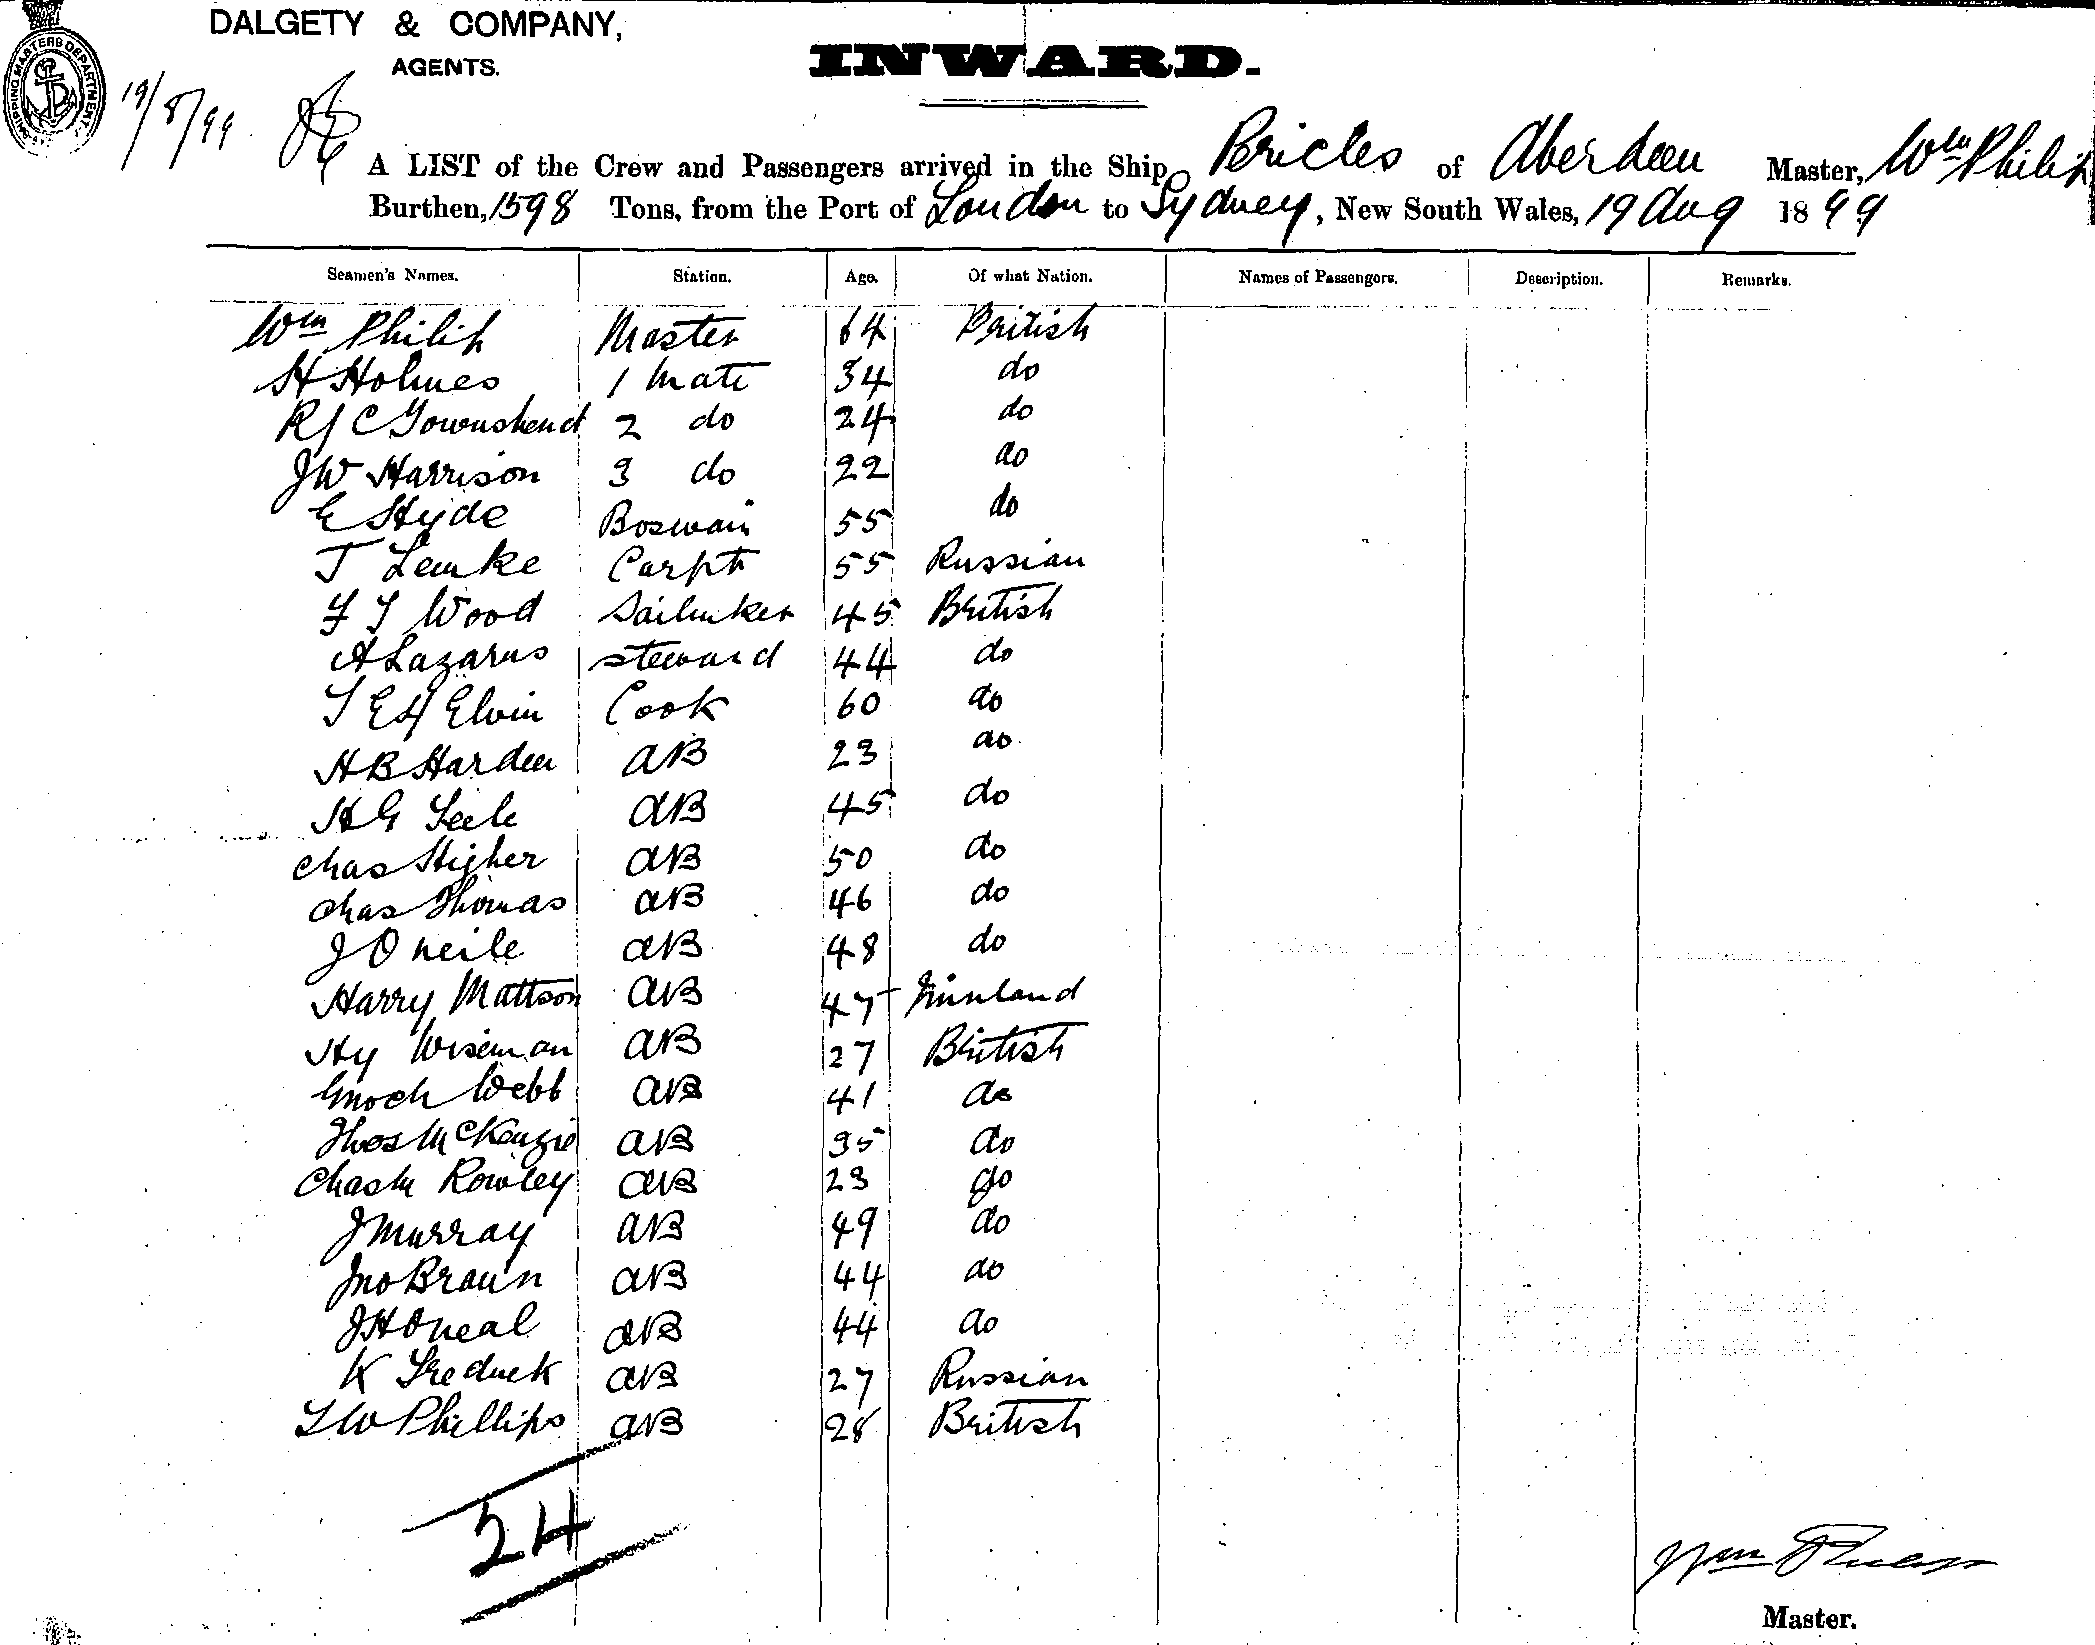 DALGETY & COMPANY,
AGENTS.
INWARD.
SHIPPING MASTERS DEPARTMENT.
19/8/99
A LIST of the Crew and Passengers arrived in the Ship Pericles of Aberdeen Master, Wm Philip
Burthen, 1598 Tons, from the Port of London to Sydney, New South Wales, 19 Aug 1899
Seamen's Names. Station. Age. Of what Nation. Names of Passengers. Description. Remarks.
Wm Philip Master 64 British
H Holmes 1 Mate 34 do
R J C Townshend 2 do 24 do
J W Harrison 3 do 22 do
E Hyde Boswain 55 do
J Lemke Carptr 55 Russian
F J Wood Sailmker 45 British
A Lazarus Steward 44 do
T E H Elvin Cook 60 do
H B Harden AB 23 do
H G Teele AB 45 do
Chas Higher AB 50 do
Chas Thomas AB 46 do
J O neile AB 48 do
Harry Mattson AB 47 Finnland
Hy Wiseman AB 27 British
Enoch Webb AB 41 do
Thos McKenzie AB 35 do
Chas M Rowley AB 23 do
J Murray AB 49 do
Jno Braun AB 44 do
J H Oneal AB 44 do
K Freduck AB 27 Russian
T W Phillips AB 28 British
24
Wm Philip
Master.